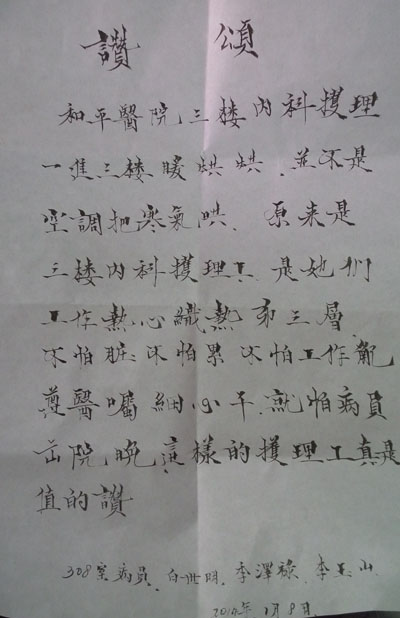 讚 頌
和平醫院三楼内科護理
一進三楼暖烘烘.並不是
空調把寒氣哄.原来是
三楼内科護理工是她們
工作熱心織熱第三層.
不怕脏不怕累不怕工作
尊醫囑細心干.就怕病員
出院晚這樣的護理工真是
值的讚
308室病員.白世明.李澤祿.李玉山
2014年1月8日